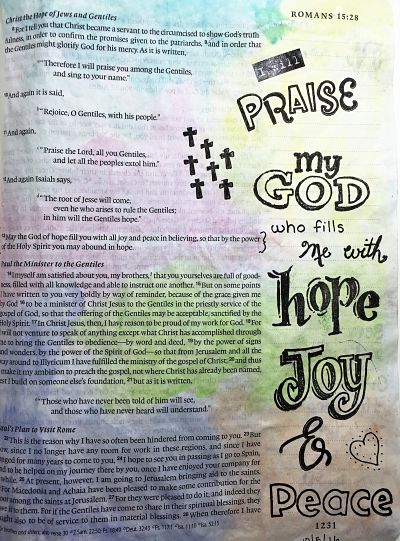 ROMANS 15:28
Christ the Hope of Jews and Gentiles
⁸For I tell you that Christ became a servant to the circumcised to show God's truth
in order to confirm the promises given to the patriarchs, ⁹and in order that
the Gentiles might glorify God for his mercy. As it is written,
"Therefore I will praise you among the Gentiles,
and sing to your name."
¹⁰And again it is said,
"Rejoice, O Gentiles, with his people."
¹¹And again,
"Praise the Lord, all you Gentiles,
and let all the peoples extol him."
¹²And again Isaiah says,
"The root of Jesse will come,
even he who arises to rule the Gentiles;
in him will the Gentiles hope."
¹³May the God of hope fill you with all joy and peace in believing, so that by the power
of the Holy Spirit you may abound in hope.
Paul the Minister to the Gentiles
¹⁴I myself am satisfied about you, my brothers, that you yourselves are full of good-
ness, filled with all knowledge and able to instruct one another. ¹⁵But on some points
I have written to you very boldly by way of reminder, because of the grace given me
by God ¹⁶to be a minister of Christ Jesus to the Gentiles in the priestly service of the
gospel of God, so that the offering of the Gentiles may be acceptable, sanctified by the
Holy Spirit. ¹⁷In Christ Jesus, then, I have reason to be proud of my work for God. ¹⁸For
I will not venture to speak of anything except what Christ has accomplished through
me to bring the Gentiles to obedience—by word and deed, ¹⁹by the power of signs
and wonders, by the power of the Spirit of God—so that from Jerusalem and all the
way around to Illyricum I have fulfilled the ministry of the gospel of Christ; ²⁰and thus
I make it my ambition to preach the gospel, not where Christ has already been named,
lest I build on someone else's foundation, ²¹but as it is written,
"Those who have never been told of him will see,
and those who have never heard will understand."
Paul's Plan to Visit Rome
²²This is the reason why I have so often been hindered from coming to you. ²³But
now, since I no longer have any room for work in these regions, and since I have
longed for many years to come to you, ²⁴I hope to see you in passing as I go to Spain,
and to be helped on my journey there by you, once I have enjoyed your company for
a while. ²⁵At present, however, I am going to Jerusalem bringing aid to the saints.
²⁶For Macedonia and Achaia have been pleased to make some contribution for the
poor among the saints at Jerusalem. ²⁷For they were pleased to do it, and indeed they
owe it to them. For if the Gentiles have come to share in their spiritual blessings, they
ought also to be of service to them in material blessings. ²⁸When therefore I have
I will
PRAISE
my
GOD
who fills
me with
hope
Joy
&
Peace
1231